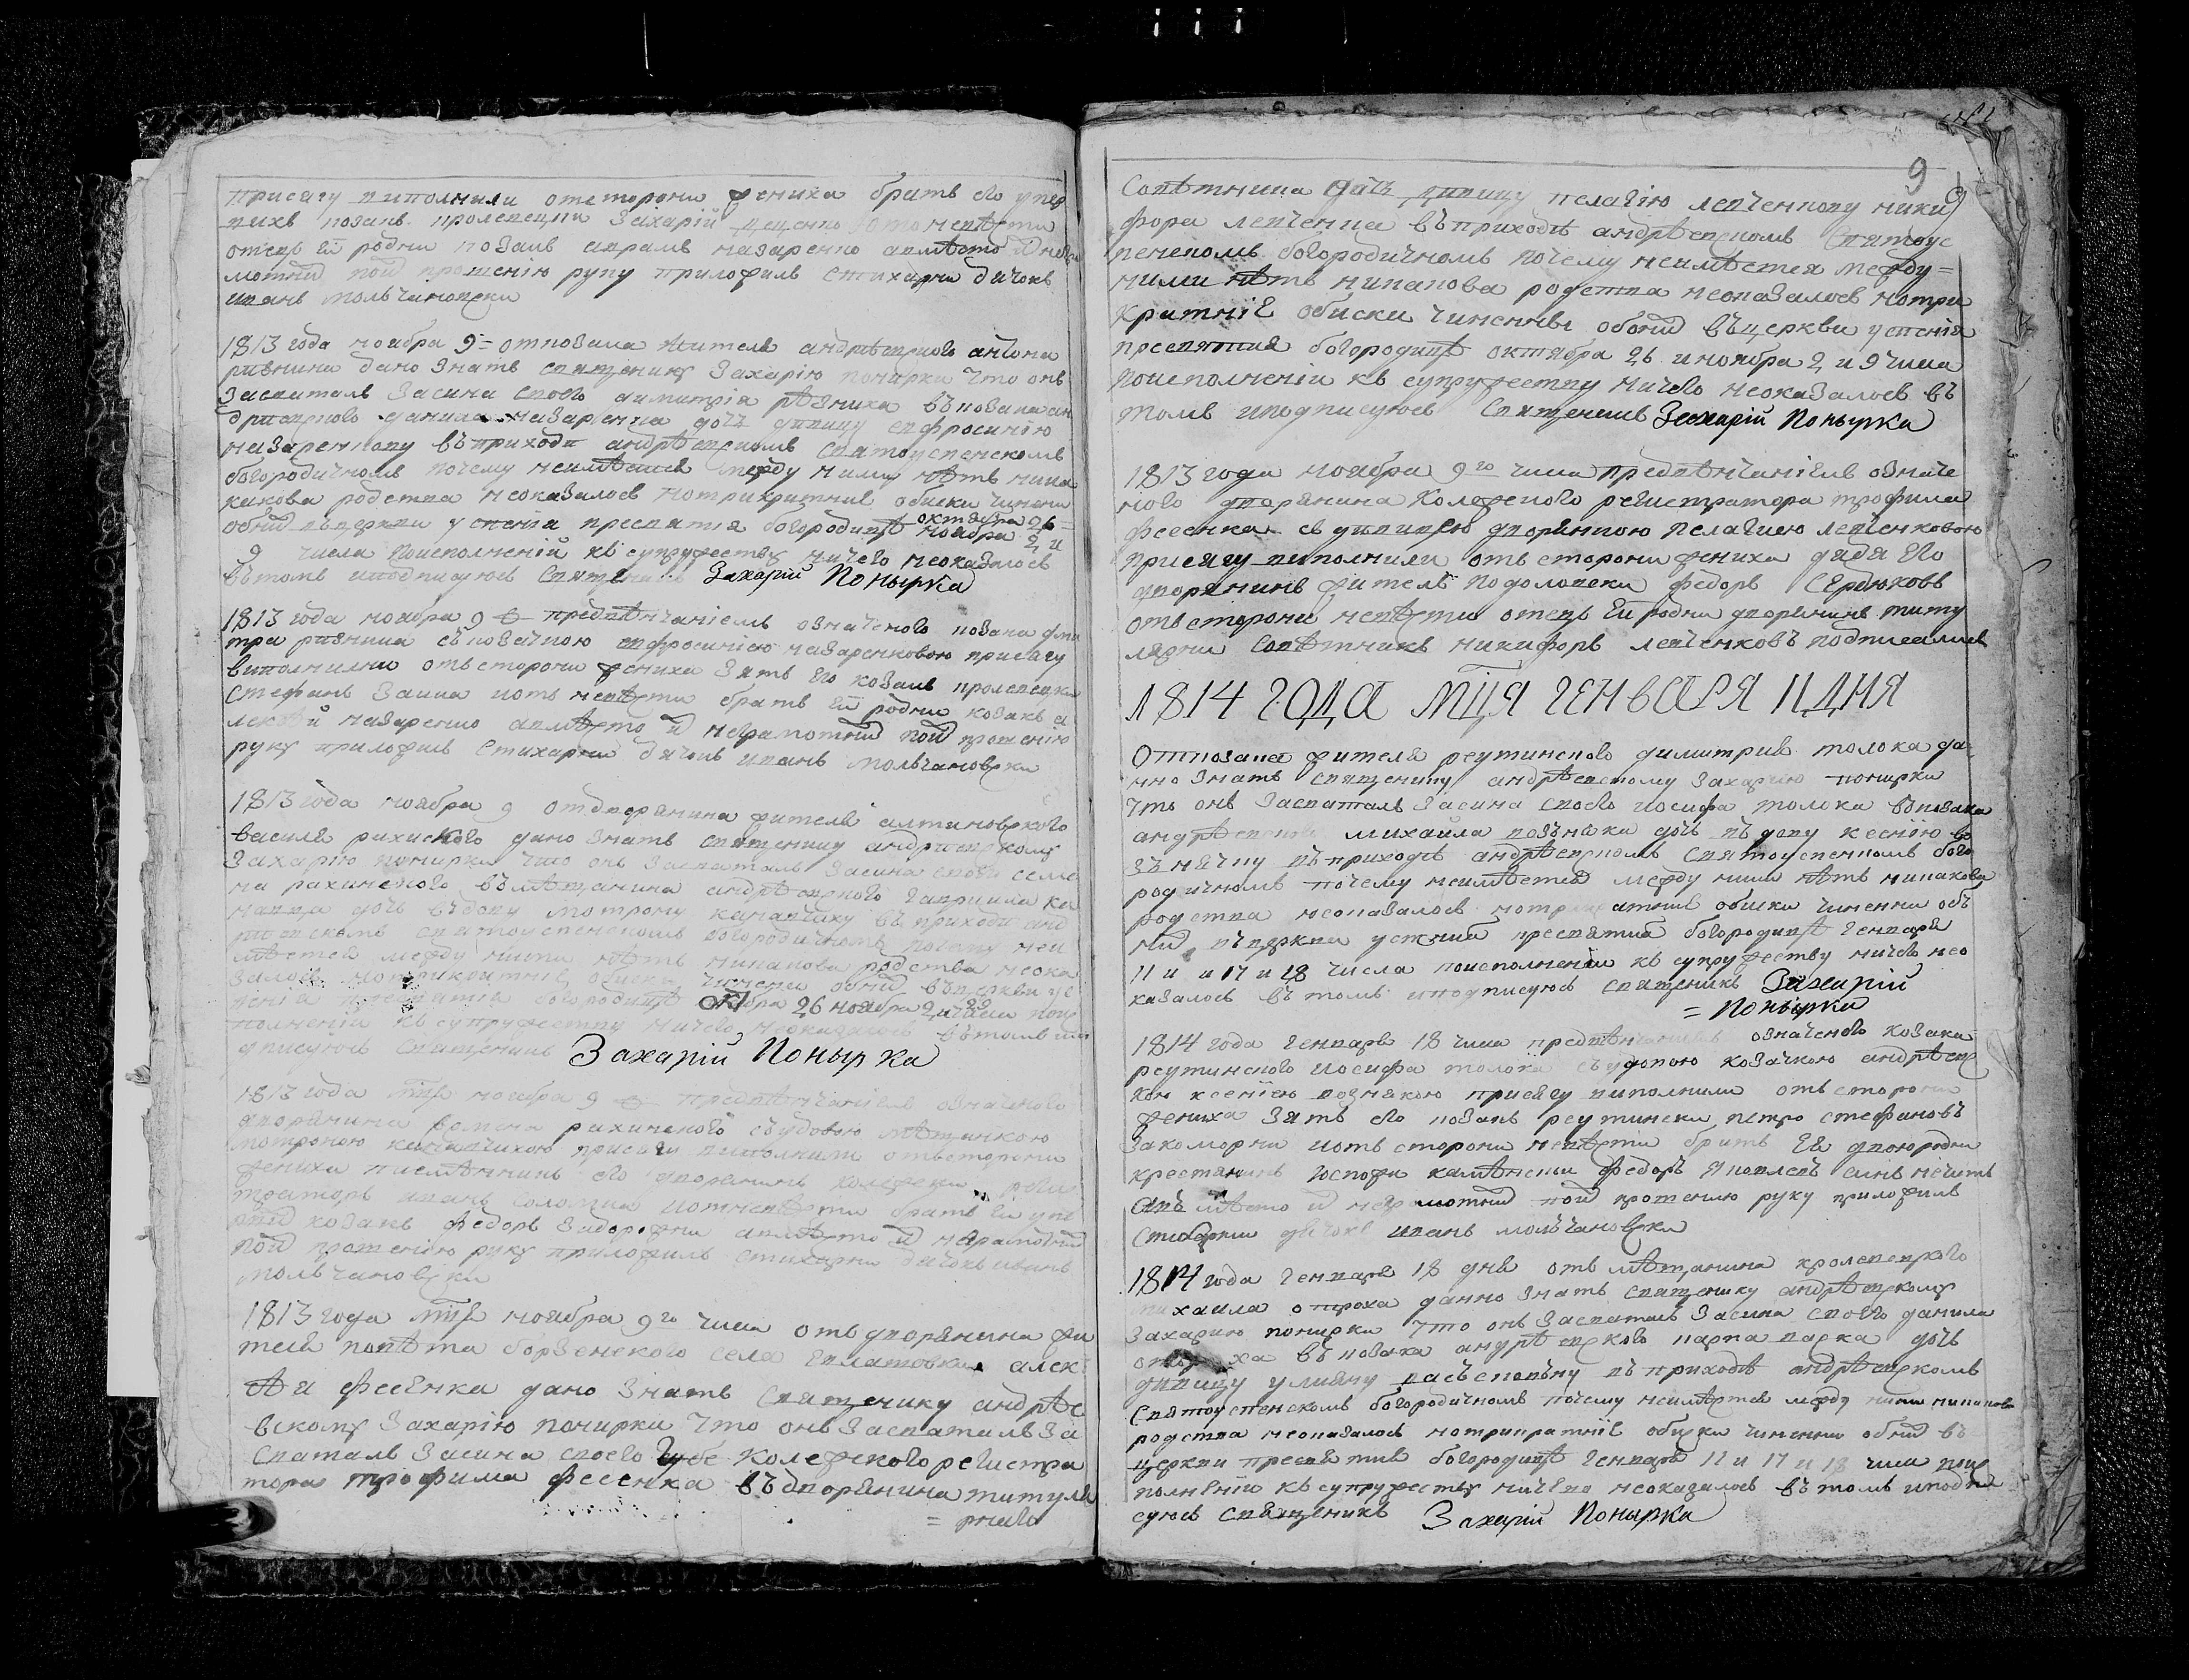 присягу виполнили отсторони жениха братъ его
вихъ козакъ кролевецки Захарій
отецъ ей родни козакъ аврамъ назаренко авмѣсто
мотній пой прошенію руку приложилъ стихарни дичокъ
иванъ молъчановски
1813 года ноября 9 откозака жителя андрѣевского антона
рѣзника дано знать священику Захарію понирки что онъ
засваталъ засина своего димитрія рѣзника въкозака ан
дрѣевского данила назаренка дочь дивицу евфросинію
назаренкову въприходи андрѣевскомъ святоуспенскомъ
богородичномъ почему неимѣется между ними нѣтъ ника
какова родства неоказалось нотрикратние обиски чинени
обній въцеркви успенія пресвятія богородицѣ октября 26
ноября 2 и
9 числа поисполненій къ супружеству ничего неоказалось
вътомъ иподписуюсь священикъ Захарій Понырка
1813 года ноября 9 предвѣнчаніемъ означеного козака дми
тра рѣзника съкозачкою евфросиніею назаренковою присягу
виполнили отъсторони жениха зять его козакъ кролевецки
стефанъ заика иотъ невѣсти братъ ей родни козакъ а
лексѣй назаренко авмѣсто й неграмотній пой прошенію
руку приложилъ стихарни дичокъ иванъ молъчановски
1813 года ноября 9 отдворянина жителя алтиновского
василя рахинского дано знать священику андрѣевскому
Захарію понирки что онъ засваталъ засина своего семе
на рахинского въмѣщанина андрѣевского гавриила ка
дочь въдову мотрону въ приходи анд
рѣевскомъ святоуспенскомъ богородичномъ почему неи
мѣется между ними нѣтъ никакова родства неока
залось нотрикратніе обиски чинени обній въцеркви ус
пенія пресвятія богородицѣ октября 26 ноября 2 и 9 числа поис
полненій къ супружеству ничего неоказалось вътомъ ипо
дписуюсь священикъ Захарій Понырка
1813 года мця ноября 9 предвѣнчаніемъ означеного
дворянина семена рахинского съудовою мѣщанкою
мотроною присягу виполнили отъсторони
жениха племѣнникъ его дворянинъ колежски реги
траторъ иванъ иотневѣсти братъ ей
козакъ федоръ задорожни авмѣсто й неграмотній
пой прошенію руку приложилъ стихарни дичокъ иванъ
молъчановски
1813 года мця ноября 9го числа отъ дворянина жи
теля повѣта борзенского села алек
ѣя фесенка дано знать священику андрѣе
вскому Захарію понирки что онъ засваталъ за
сваталъ засина своего губе колежского регистра
тора трофима фесенка въдворянина титуля
= рного
9
9
Совѣтника дочь дивицу пелагію левченкову ники
фора левченка въприходѣ андрѣевскомъ святоус
пенскомъ богородичномъ почему неимѣется между=
ними нѣтъ никакова родства неоказалось нотри
кратніе обиски чиненны обоній въцеркви успенія
пресвятія богородицѣ октября 26 иноября 2 и 9 числа
поисполненіи къ супружеству ничего неоказалось въ
томъ иподписуюсь Священикъ Захарій Понырка
1813 года ноября 9го числа предвѣнчаніемъ означе
ного дворянина колежского регистратора трофима
фесенка съ дивицею дворянкою пелагиею левченковою
присягу виполнили отъ сторони жениха дядя его
дворянинъ житель подоловски федоръ Сердюковъ
отъсторони невѣсти отецъ ей родни дворянинъ титу
лярни Совѣтникъ никифоръ левченковъ подписались
1814 ГОДА МЦЯ ГЕНВАРЯ 11 ДНЯ
Откозака жителя реутинского димитрия толока да
нно знать священику андрѣевскому Захарию понирки
что онъ засваталъ засина своего иосифа толока въкозака
андрѣевского михайла дочь въдову ксенію
въприходѣ андрѣевскомъ святоуспенкомъ бого
родичномъ почему неимѣется между ними нѣтъ никакова
родства неоказалось нотрикратние обиски чиненни об
ній въцеркви успения пресвятия богородицѣ генваря
11 и и 17 и 18 числа поисполнении къ супружеству ничего нео
казалось въ томъ иподписуюсь священикъ Захарій
= Понырка
1814 года генваря 18 числа предвѣнчаниемъ означеного козака
реутинского иосифа толока съудовою козачкою андрѣев
кою ксениею присягу виполнили отъсторони
жениха зять его козакъ реутински петро стефановъ
закоморни иотъ сторони невѣсти братъ ей двоюродни
крестянинъ госпожи федоръ яковлевъ синъ
авъмѣсто й неграмотній пой прошению руку приложилъ
стихарни дичокъ иванъ молъчановски
1814 года генваря 18 дня отъ мѣщанина кролевецкого
михаила отроха данно знать священику андрѣевскому
Захарию понирки что онъ засваталъ засина своего данила
отроха въкозака андрѣевского дочь
дивицу улияну въприходѣ андрѣевскомъ
святоуспенскомъ богородичномъ почему неимѣется между ними никакова
родства неоказалось нотрикратніе обиски чиненни обній въ
церкви пресвятия богородицѣ генваря 11 и 17 и 18 числа поис
полнѣнию къ супружеству ничего неоказалось въ томъ иподпи
суюсь священикъ Захарій Понырка